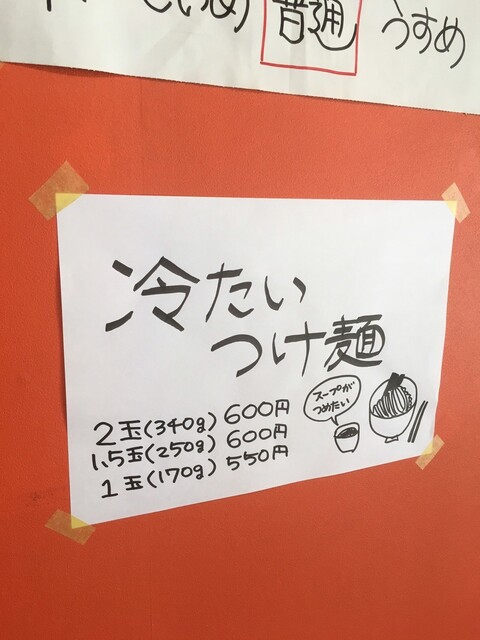 こいめ 普通 うすめ
冷たい
つけ麺
2玉(340g) 600円
1.5玉(250g) 600円
1玉(170g) 550円
スープが
つめたい